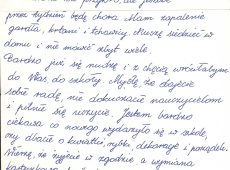 przez tydzień będę chora. Mam zapalenie
gardła, krtani i tchawicy. Muszę siedzieć w
domu i nie mówić zbyt wiele.
Bardzo już się nudzę i z chęcią wróciłabym
do Was, do szkoły. Myślę, że dajecie
sobie radę, nie dokuczacie nauczycielom
i pilnie się uczycie. Jestem bardzo
ciekawa co nowego wydarzyło się w szkole,
czy dbacie o kwiatki, rybki, dekoracje i porządek.
Wiemy, że żyjecie w zgodzie a wymiana